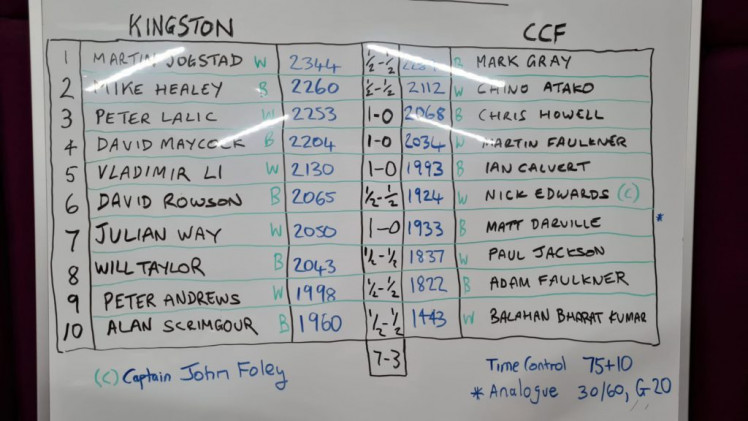 KINGSTON CCF
1 MARTIN JOGSTAD W 2344 ½-½ B MARK GRAY
2 MIKE HEALEY B 2260 ½-½ 2112 W CHINO ATAKO
3 PETER LALIC W 2253 1-0 2068 B CHRIS HOWELL
4 DAVID MAYCOCK B 2204 1-0 2034 W MARTIN FAULKNER
5 VLADIMIR LI W 2130 1-0 1993 B IAN CALVERT
6 DAVID ROWSON B 2065 ½-½ 1924 W NICK EDWARDS (C)
7 JULIAN WAY W 2050 1-0 1933 B MATT DARVILLE *
8 WILL TAYLOR B 2043 ½-½ 1837 W PAUL JACKSON
9 PETER ANDREWS W 1998 ½-½ 1822 B ADAM FAULKNER
10 ALAN SCRIMGOUR B 1960 ½-½ 1443 W BALAHAN BHARAT KUMAR
7-3
(C) Captain John Foley
Time Control 75+10
* Analogue 30/60, G20